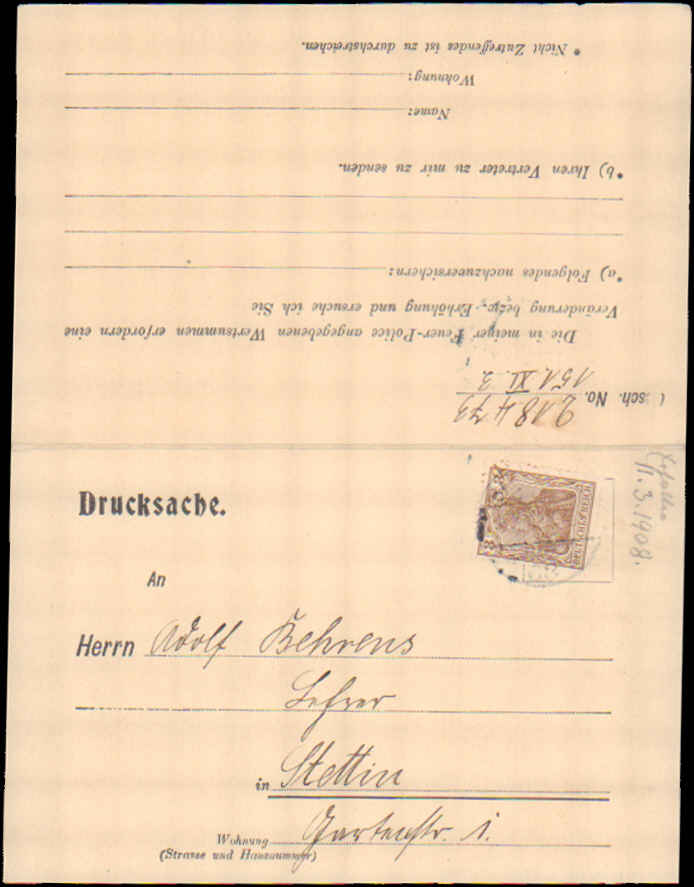 * Nicht Zutreffendes ist zu durchstreichen.
Wohnung:
Name:
*b) Ihren Vertreter zu mir zu senden.
*a) Folgendes nachzuversichern:
Veränderung bezw. Erhöhung und ersuche ich Sie
Die in meiner Feuer-Police angegebenen Wertsummen erfordern eine
151 XI. 2.
sch. No. 218473
Drucksache.
DEUTSCHES REICH
3
3
11.3.1908.
An
Herrn Adolf Behrens
Lehrer
in Stettin
Wohnung Gartenstr. 1.
(Strasse und Hausnummer)